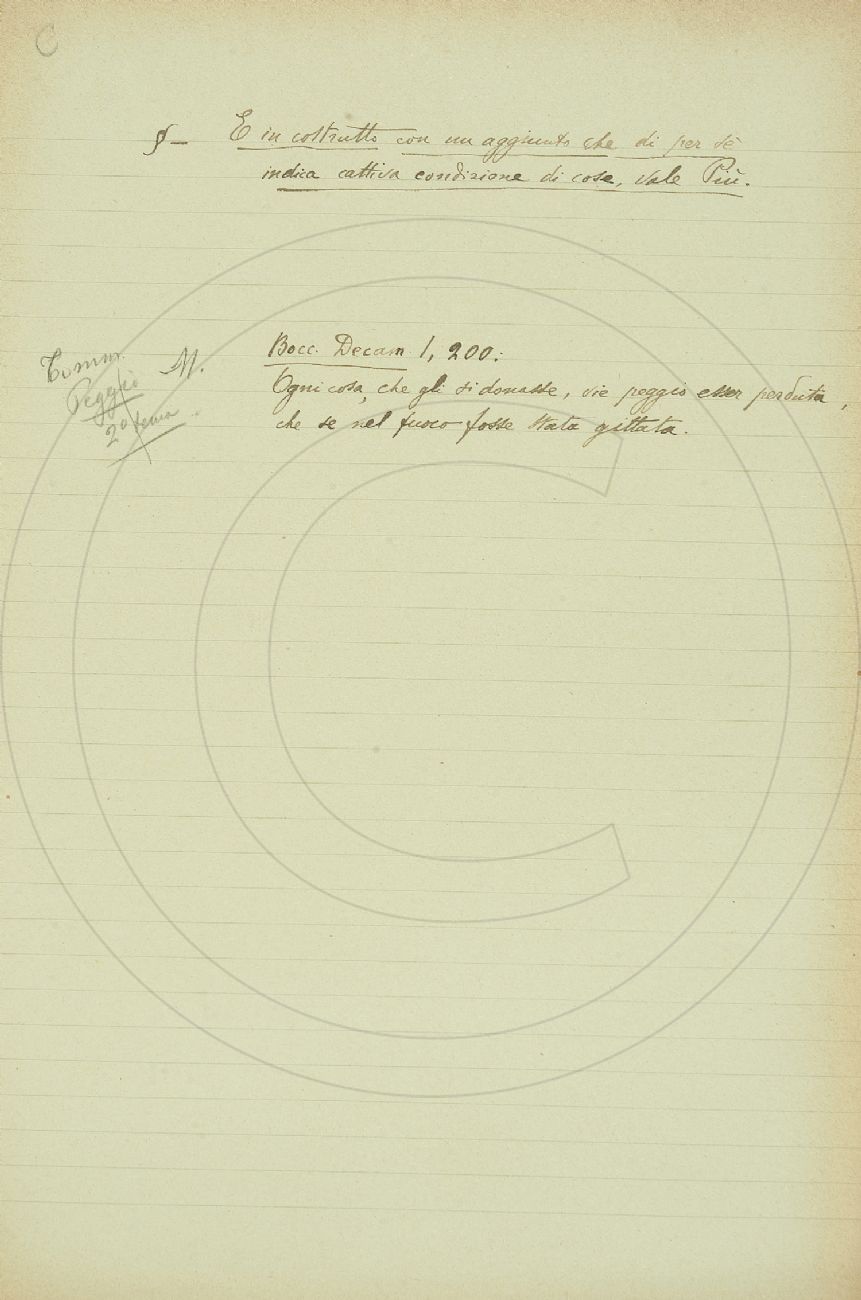 C
§ — E in costrutto con un aggiunto che di per sè
indica cattiva condizione di cose, vale Più.
Tomm.
Peggio
2° tema
M.
Bocc. Decam. 1, 200:
Ogni cosa, che gli si donasse, vie peggio esser perduta,
che se nel fuoco fosse stata gittata.